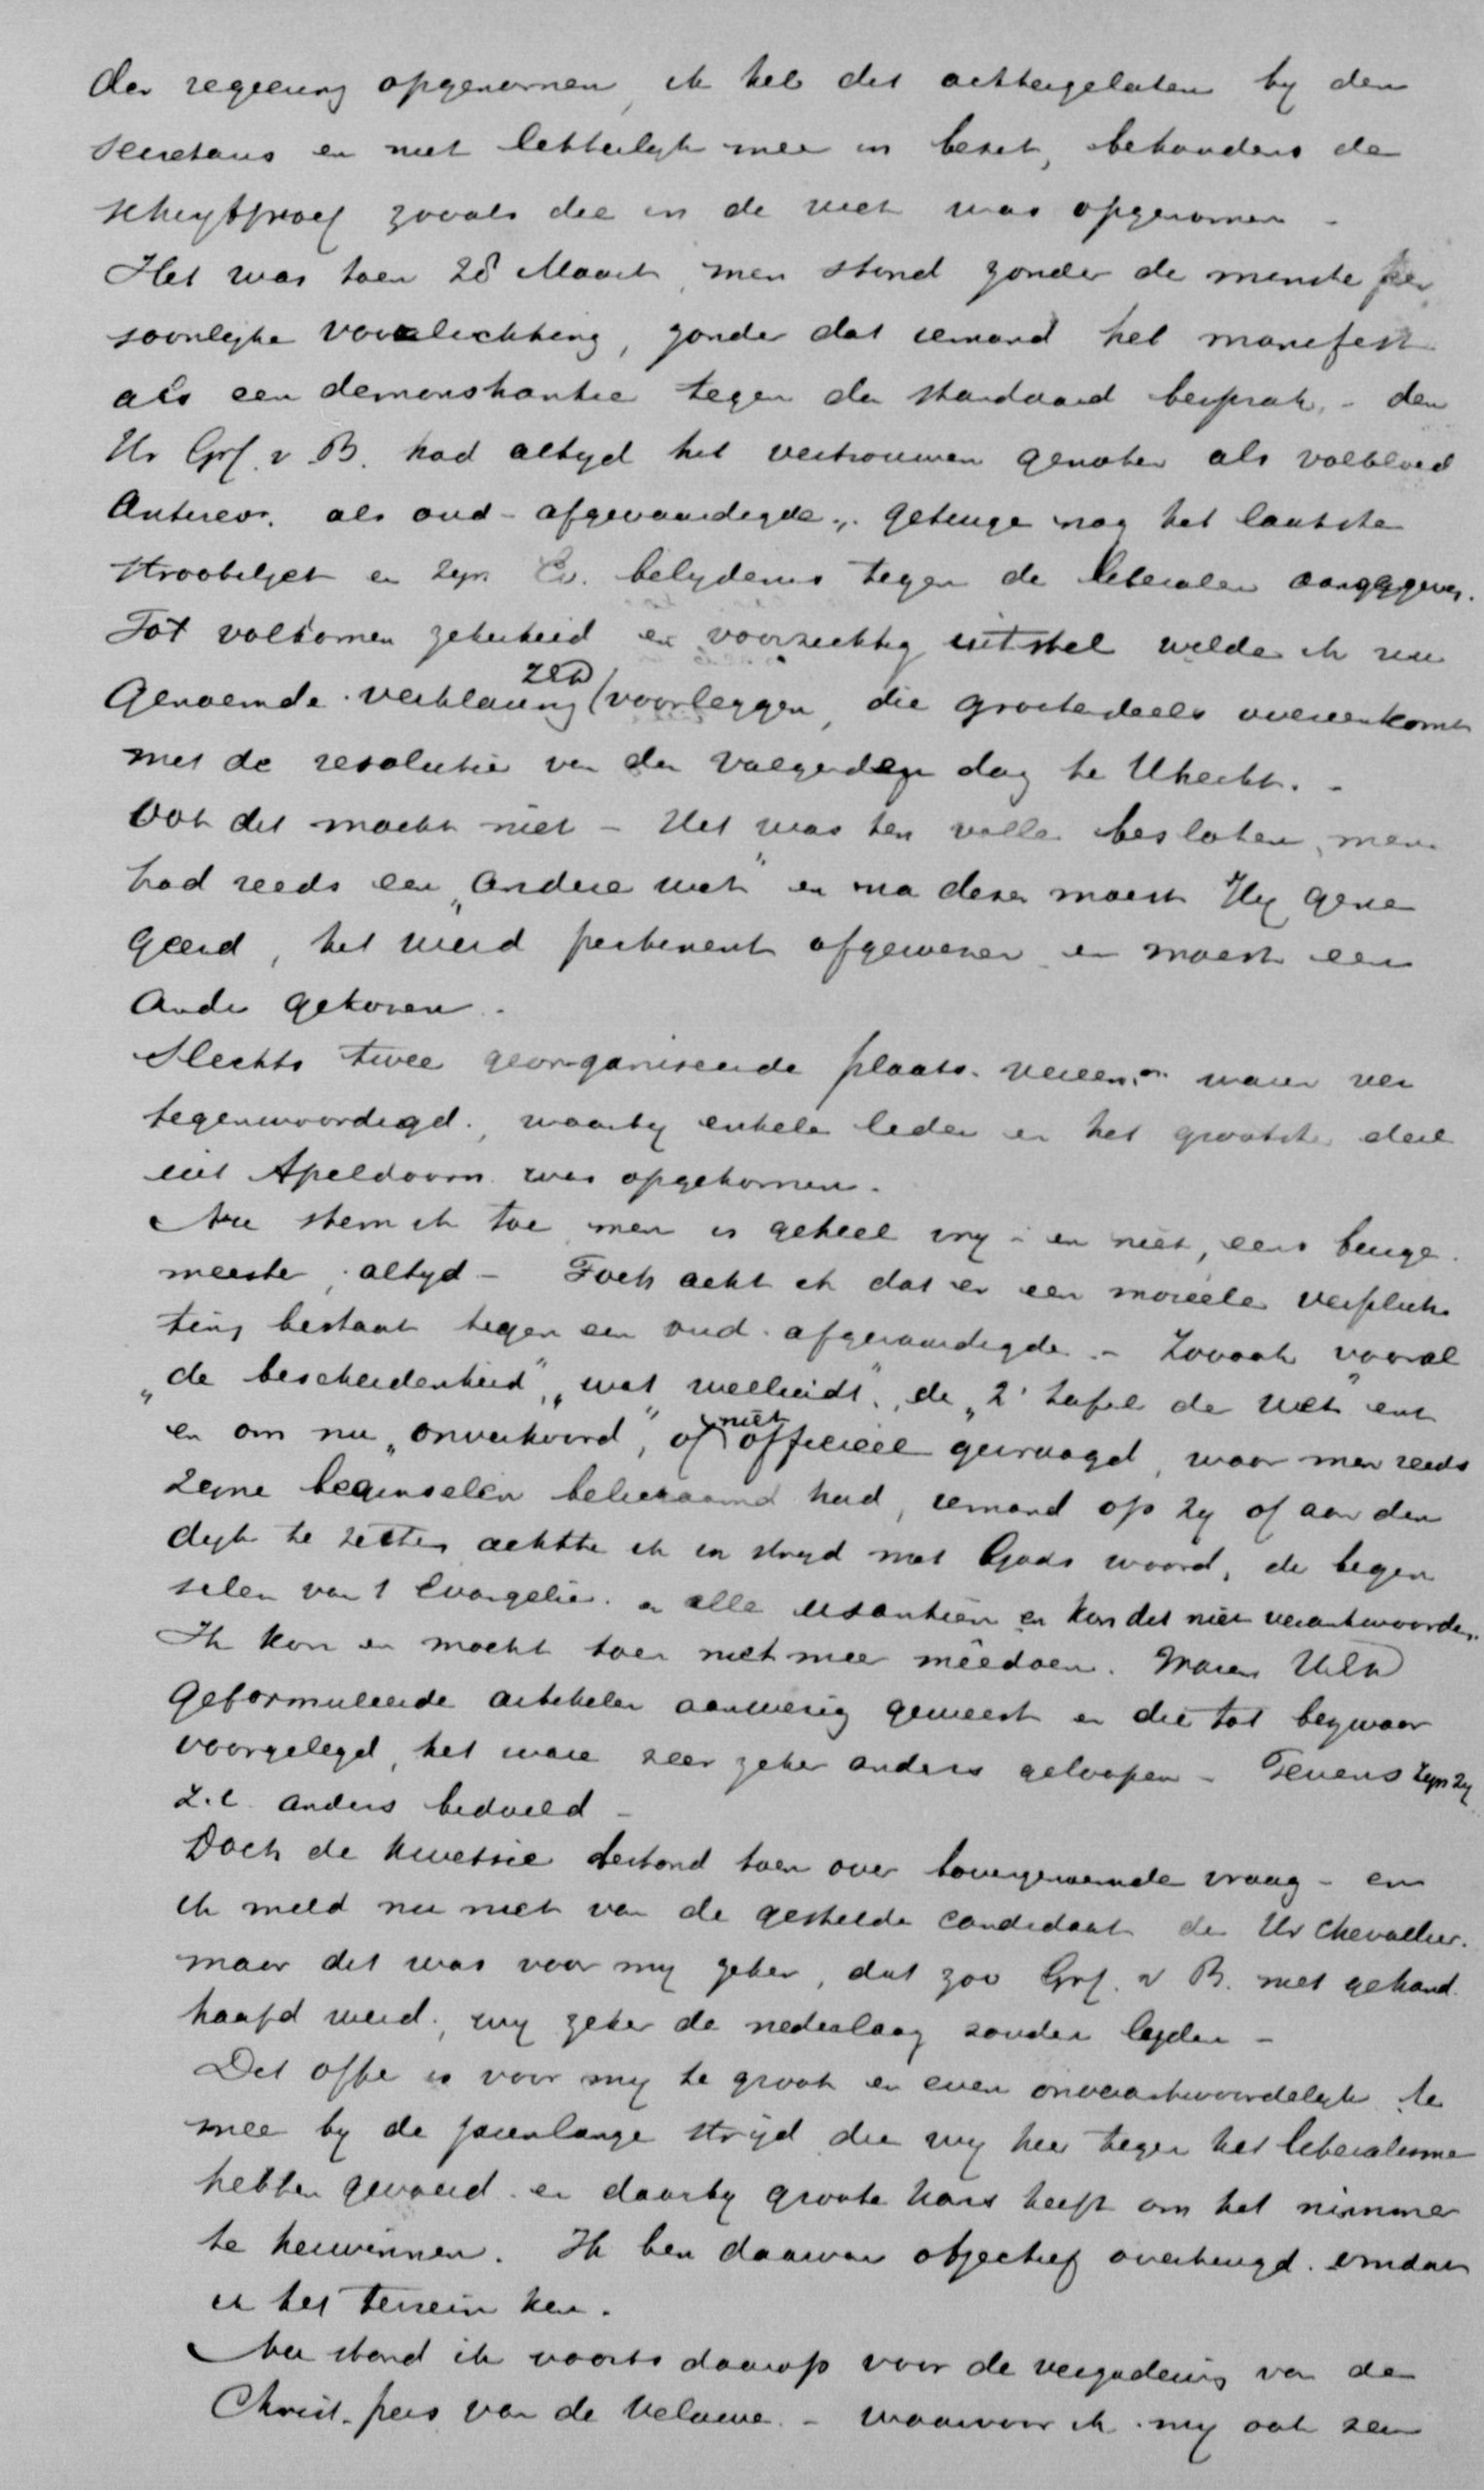 der regeering opgenomen, ik heb dit achtergelaten by den
Secretaris en niet letterlyk meer in bezit, behoudens de
zooals die in de wet was opgenomen -
Het was toen 28 Maart, men stond zonder de minste per
soonlyke voorlichting, zonder dat iemand het manifest
als een demonstrantie tegen de Standaard besprak, - den
Hr Grf. v. B. had altyd het vertrouwen genoten als volbloed
Antirev. als oud-afgevaardigde, getuige nog het laatste
strooibiljet en zyn Ev. belydenis tegen de liberalen aangegeven.
Tot volkomen zekerheid en voorzichtig uitstel wilde ik nu
Genoemde verklaring ZEd voorleggen, die grootendeels overeenkomt
met de resolutie van den volgenden dag te Utrecht. -
Ook dit mocht niet - Het was ten volle besloten, men
had reeds een „andere wet" en na deze moest Hy gene
geerd, het werd pertinent afgewezen en moest een
Ander gekozen.
Slechts twee georganiseerde plaats. vereen.en waren ver
tegenwoordigd, waarby enkele leden en het grootste deel
uit Apeldoorn was opgekomen.
Nu stem ik toe men is geheel vry - en niet, eens burge
meester, altyd - Toch acht ik dat er een moreele verplich
ting bestaat tegen een oud-afgevaardigde. - Zooook vooral
„de bescheidenheid", „wat welluidt", de „2e tafel der wet" enz
en om nu „onverhoord", of niet officieel gevraagd, waar men reeds
zyne beginselen had, iemand op zy of aan den
dyk te zetten achtte ik in stryd met Gods woord, de begin
selen van 't Evangelie en alle usantieën en kon dit niet verantwoorden.
Ik kon en mocht toen niet meer meêdoen. Waren UEd
Geformuleerde artikelen aanwezig geweest en die tot
voorgelegd, het ware zeer zeker anders geloopen - Tevens zyn zy
z.i. anders bedoeld -
Doch de kwestie bestond toen over bovengenoemde vraag - en
ik meld nu niet van de gestelde candidaat de Hr Chevallier.
maar dit was voor my zeker, dat zoo Grf. v B. niet gehand
haafd werd, wy zeker de nederlaag zouden lyden -
Dit offer is voor my te groot en even onverantwoordelyk te
meer by de jarenlange stryd die wy hier tegen het liberalisme
hebben gevoerd en daarby groote kans heeft om het nimmer
te herwinnen. Ik ben daarvan objectief overtuigd omdat
ik het terrein ken.
Nu stond ik voorts daarop voor de vergadering van de
Christ. pers van de Veluwe. - waarvoor ik my ook zeer